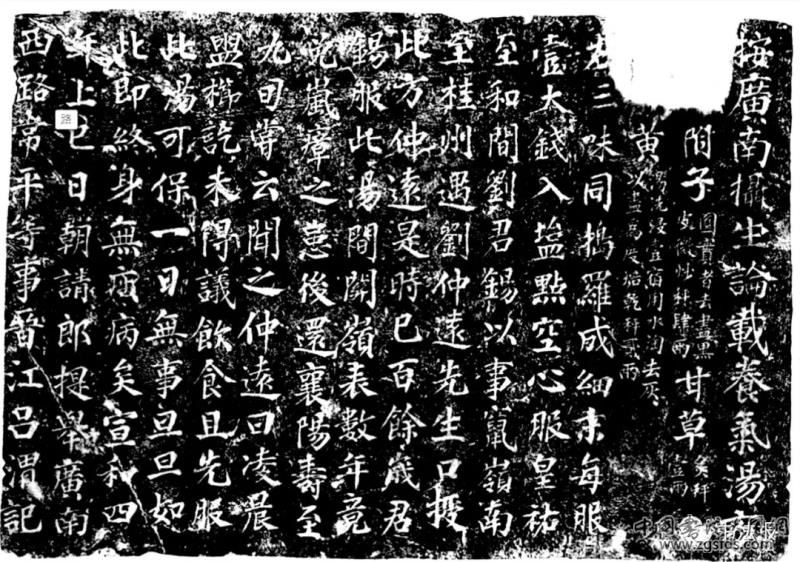 按廣南攝生論載養氣湯
附子圓實者去盡黑皮微炒秤肆兩甘草炙秤壹兩
黃湯洗浸壹宿用水淘去灰以盡爲度焙乾秤貳兩
右三味同搗羅成細末每服
壹大錢入塩點空心服皇祐
至和間劉君錫以事竄嶺南
至桂州遇劉仲遠先生口授
此方仲遠是時已百餘歲君
錫服此湯間關嶺表數年竟
免嵐瘴之患後還襄陽壽至
九旬嘗云聞之仲遠曰凌晨
盥櫛訖未得議飲食且先服
此湯可保一日無事旦旦如
此即終身無疾病矣宣和四
年上巳日朝請郎提舉廣南
西路常平等事晉江呂渭記
路